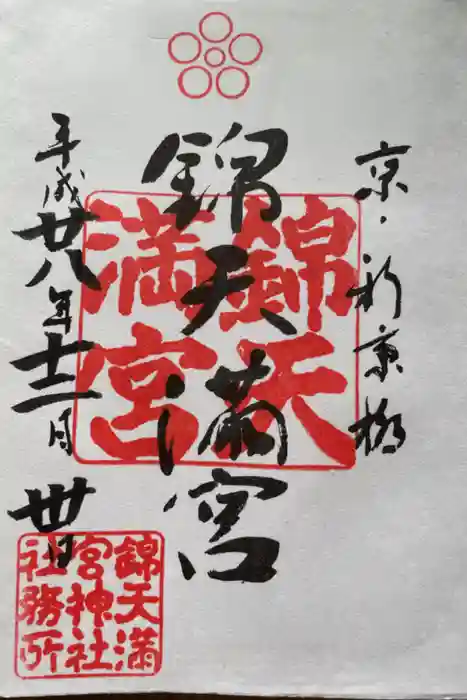 京・新京極
錦天満宮
平成廿八年十二月卅日
錦天
満宮
錦天満
宮神社
社務所